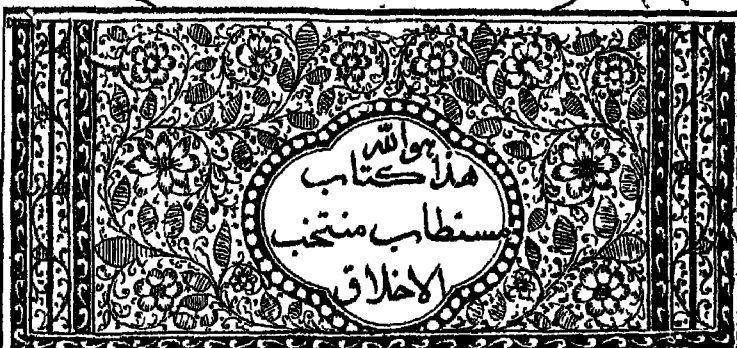 هوالله
هذا كتاب
مستطاب منتخب
الاخلاق